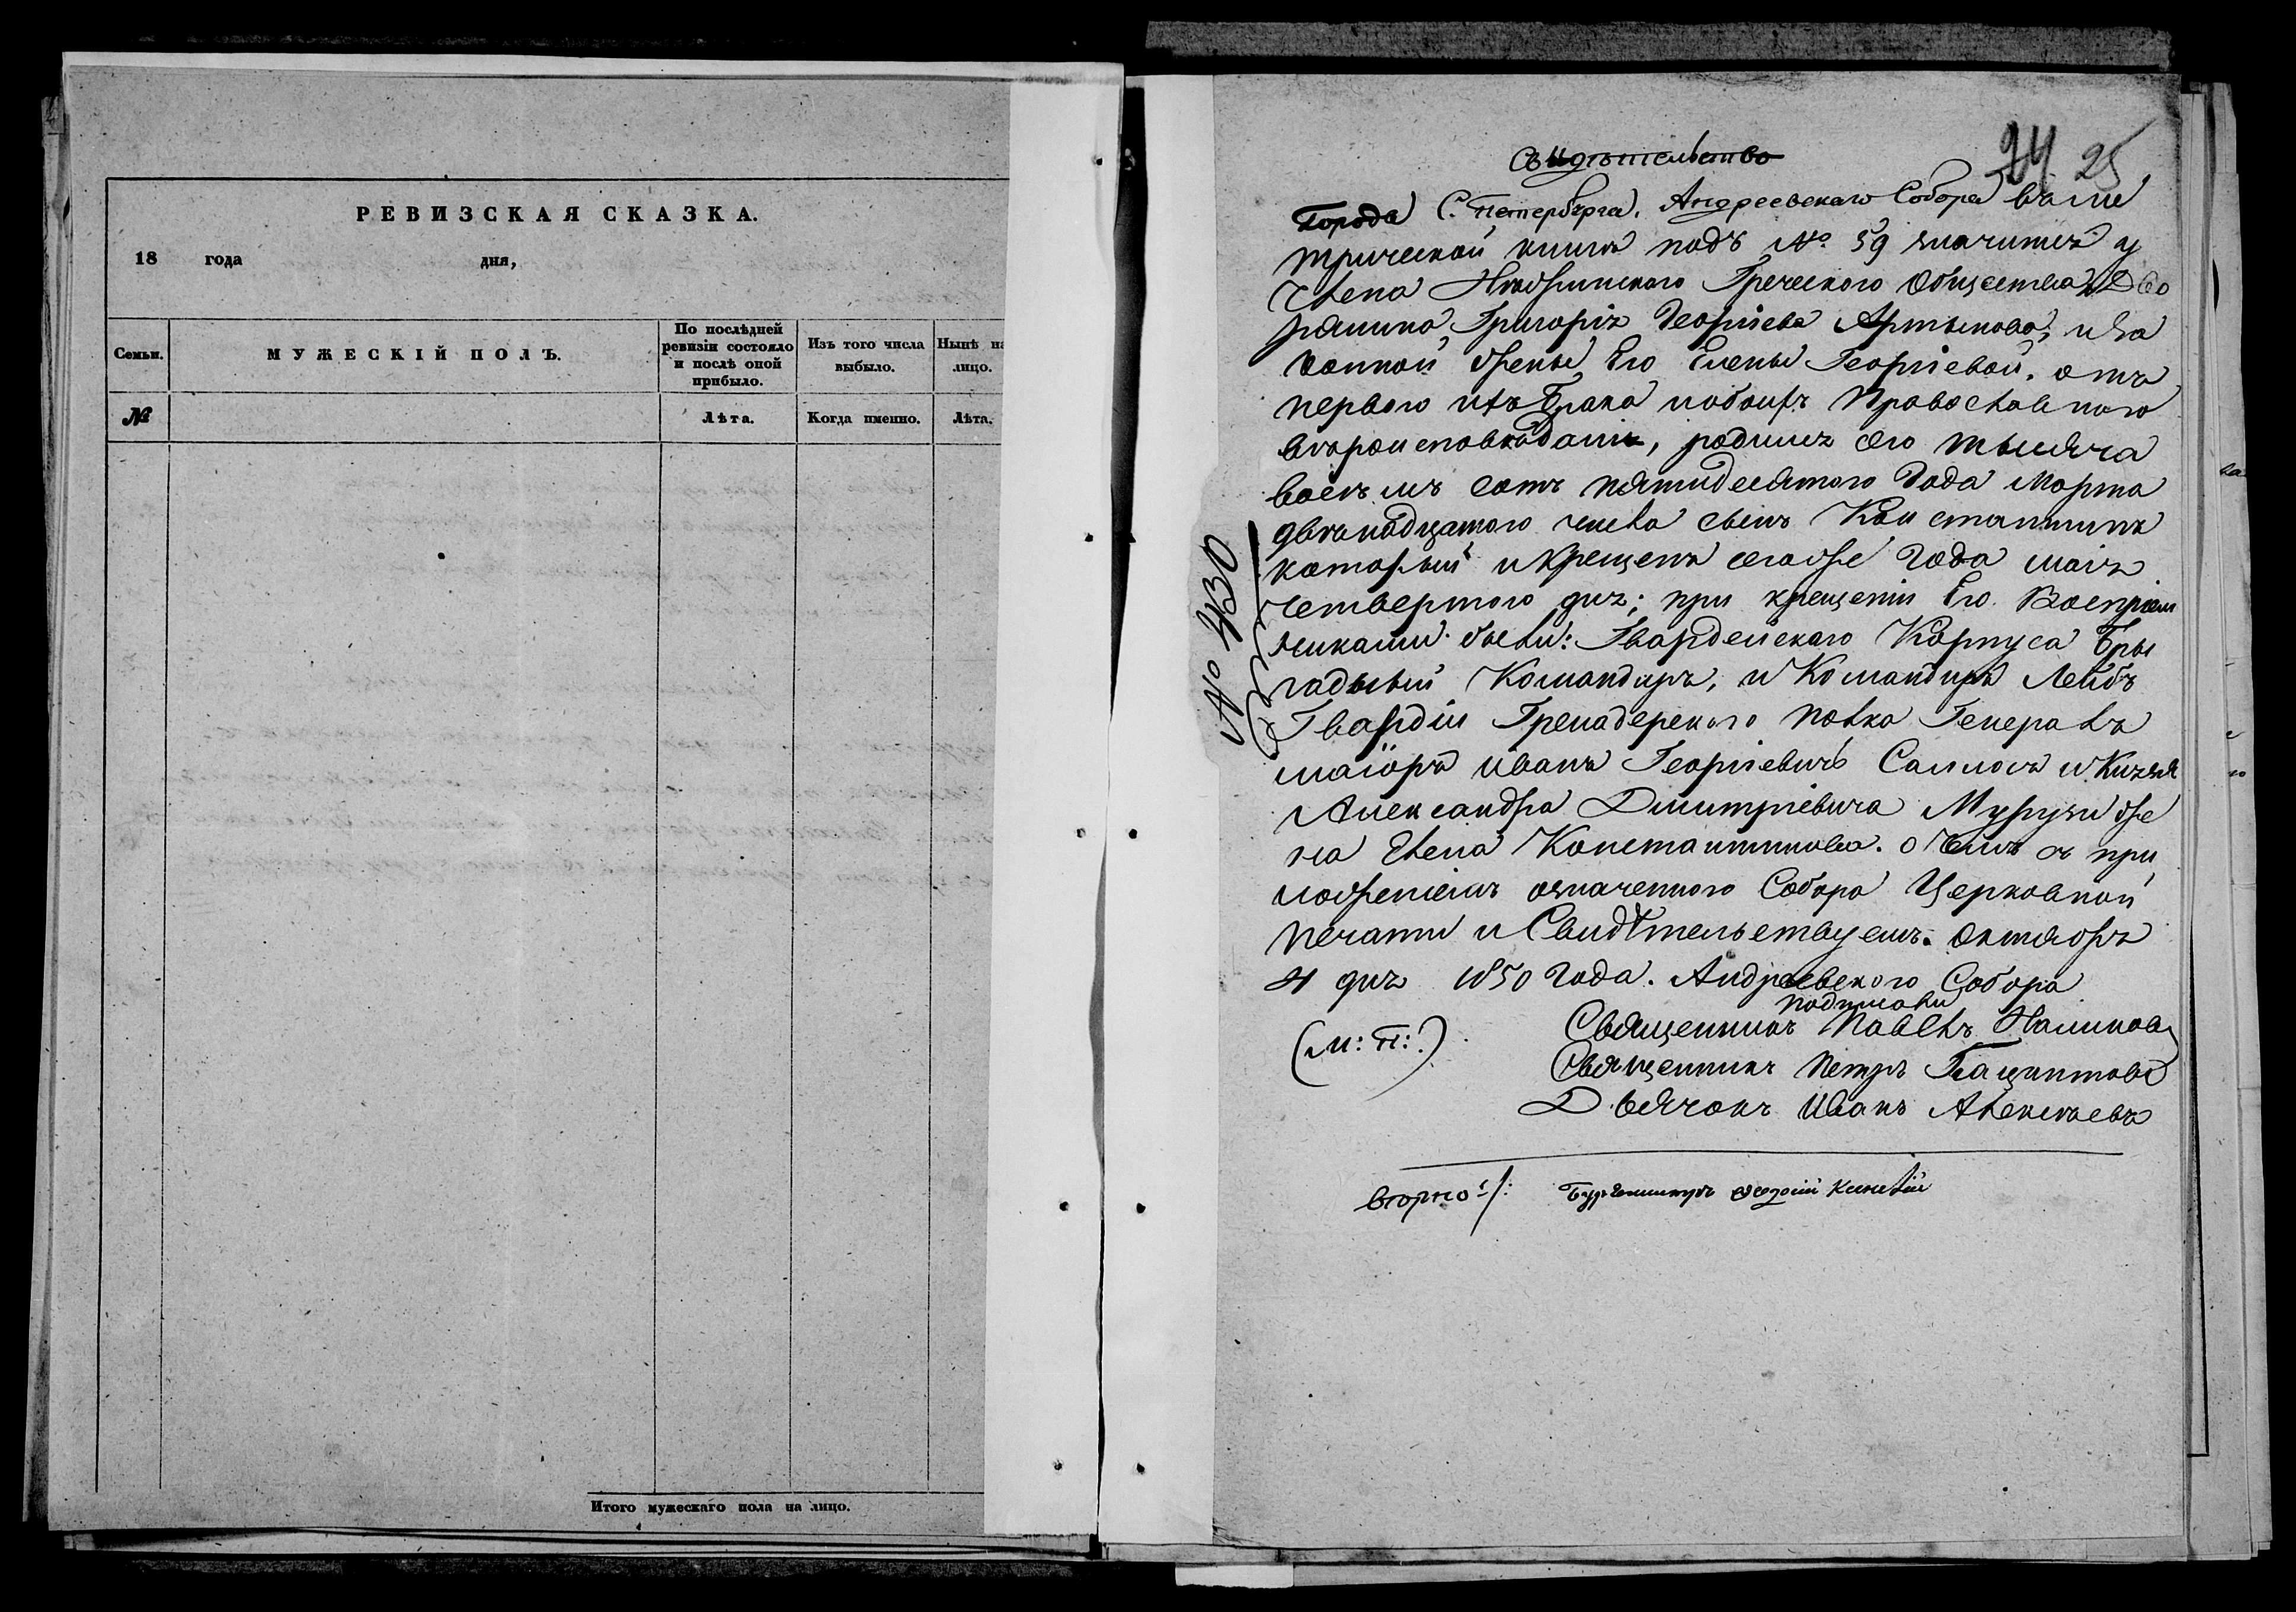 РЕВИЗСКАЯ СКАЗКА.
18 года дня,
Семьи.
МУЖЕСКІЙ ПОЛЪ.
По послѣдней
ревизіи состояло
и послѣ оной
прибыло.
Изъ того числа
выбыло.
Нынѣ на
лицо.
№
Лѣта.
Когда именно.
Лѣта.
Итого мужескаго пола на лицо.
24 25
Свидѣтельство
Города С. Петербурга. Андреевскаго Собора въ ме
трической книгѣ подъ № 59 значится у
члена Нѣжинскаго Греческого Общества Дво
рянина Григорія Георгіева Артынова, и за
конной жены Его Елены Георгіевой. отъ
перваго ихъ Брака и обоихъ Православнаго
вѣроисповѣданія, родился сего тысяча
восемъ сотъ пятидесятого Года Марта
двѣнадцатого числа сынъ Константинъ
который и крещенъ сегоже Года маія
четвертого дня; при крещеніи Его Воспріем
никами были: Гвардейскаго Корпуса Бры
гадный Командиръ, и Командиръ Лейбъ
Гвардіи Гренадерского полка Генералъ
маіоръ Иванъ Георгіевичъ и Князя
Александра Дмитріевича Мурузи же
на Елена Константинова. О чемъ съ при
ложеніемъ означенного Собора Церковной
печати и Свидѣтельствуемъ. Октября
4 дня 1850 Года. Андреевского Собора
подписали
(М: П:) Священникъ Павелъ
Священникъ Петръ
Дьячокъ Иванъ Алексѣевъ
вѣрно:
№ 430